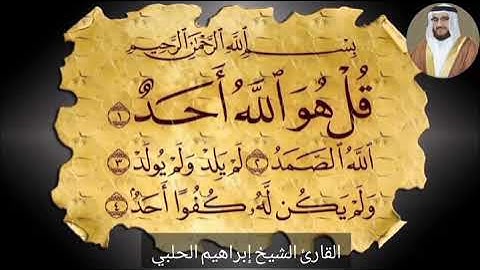 بِسْمِ ٱللَّهِ ٱلرَّحْمَٰنِ ٱلرَّحِيمِ
قُلْ هُوَ ٱللَّهُ أَحَدٌ ١
ٱللَّهُ ٱلصَّمَدُ ٢ لَمْ يَلِدْ وَلَمْ يُولَدْ ٣
وَلَمْ يَكُن لَّهُۥ كُفُوًا أَحَدٌۢ ٤
القارئ الشيخ إبراهيم الحلبي